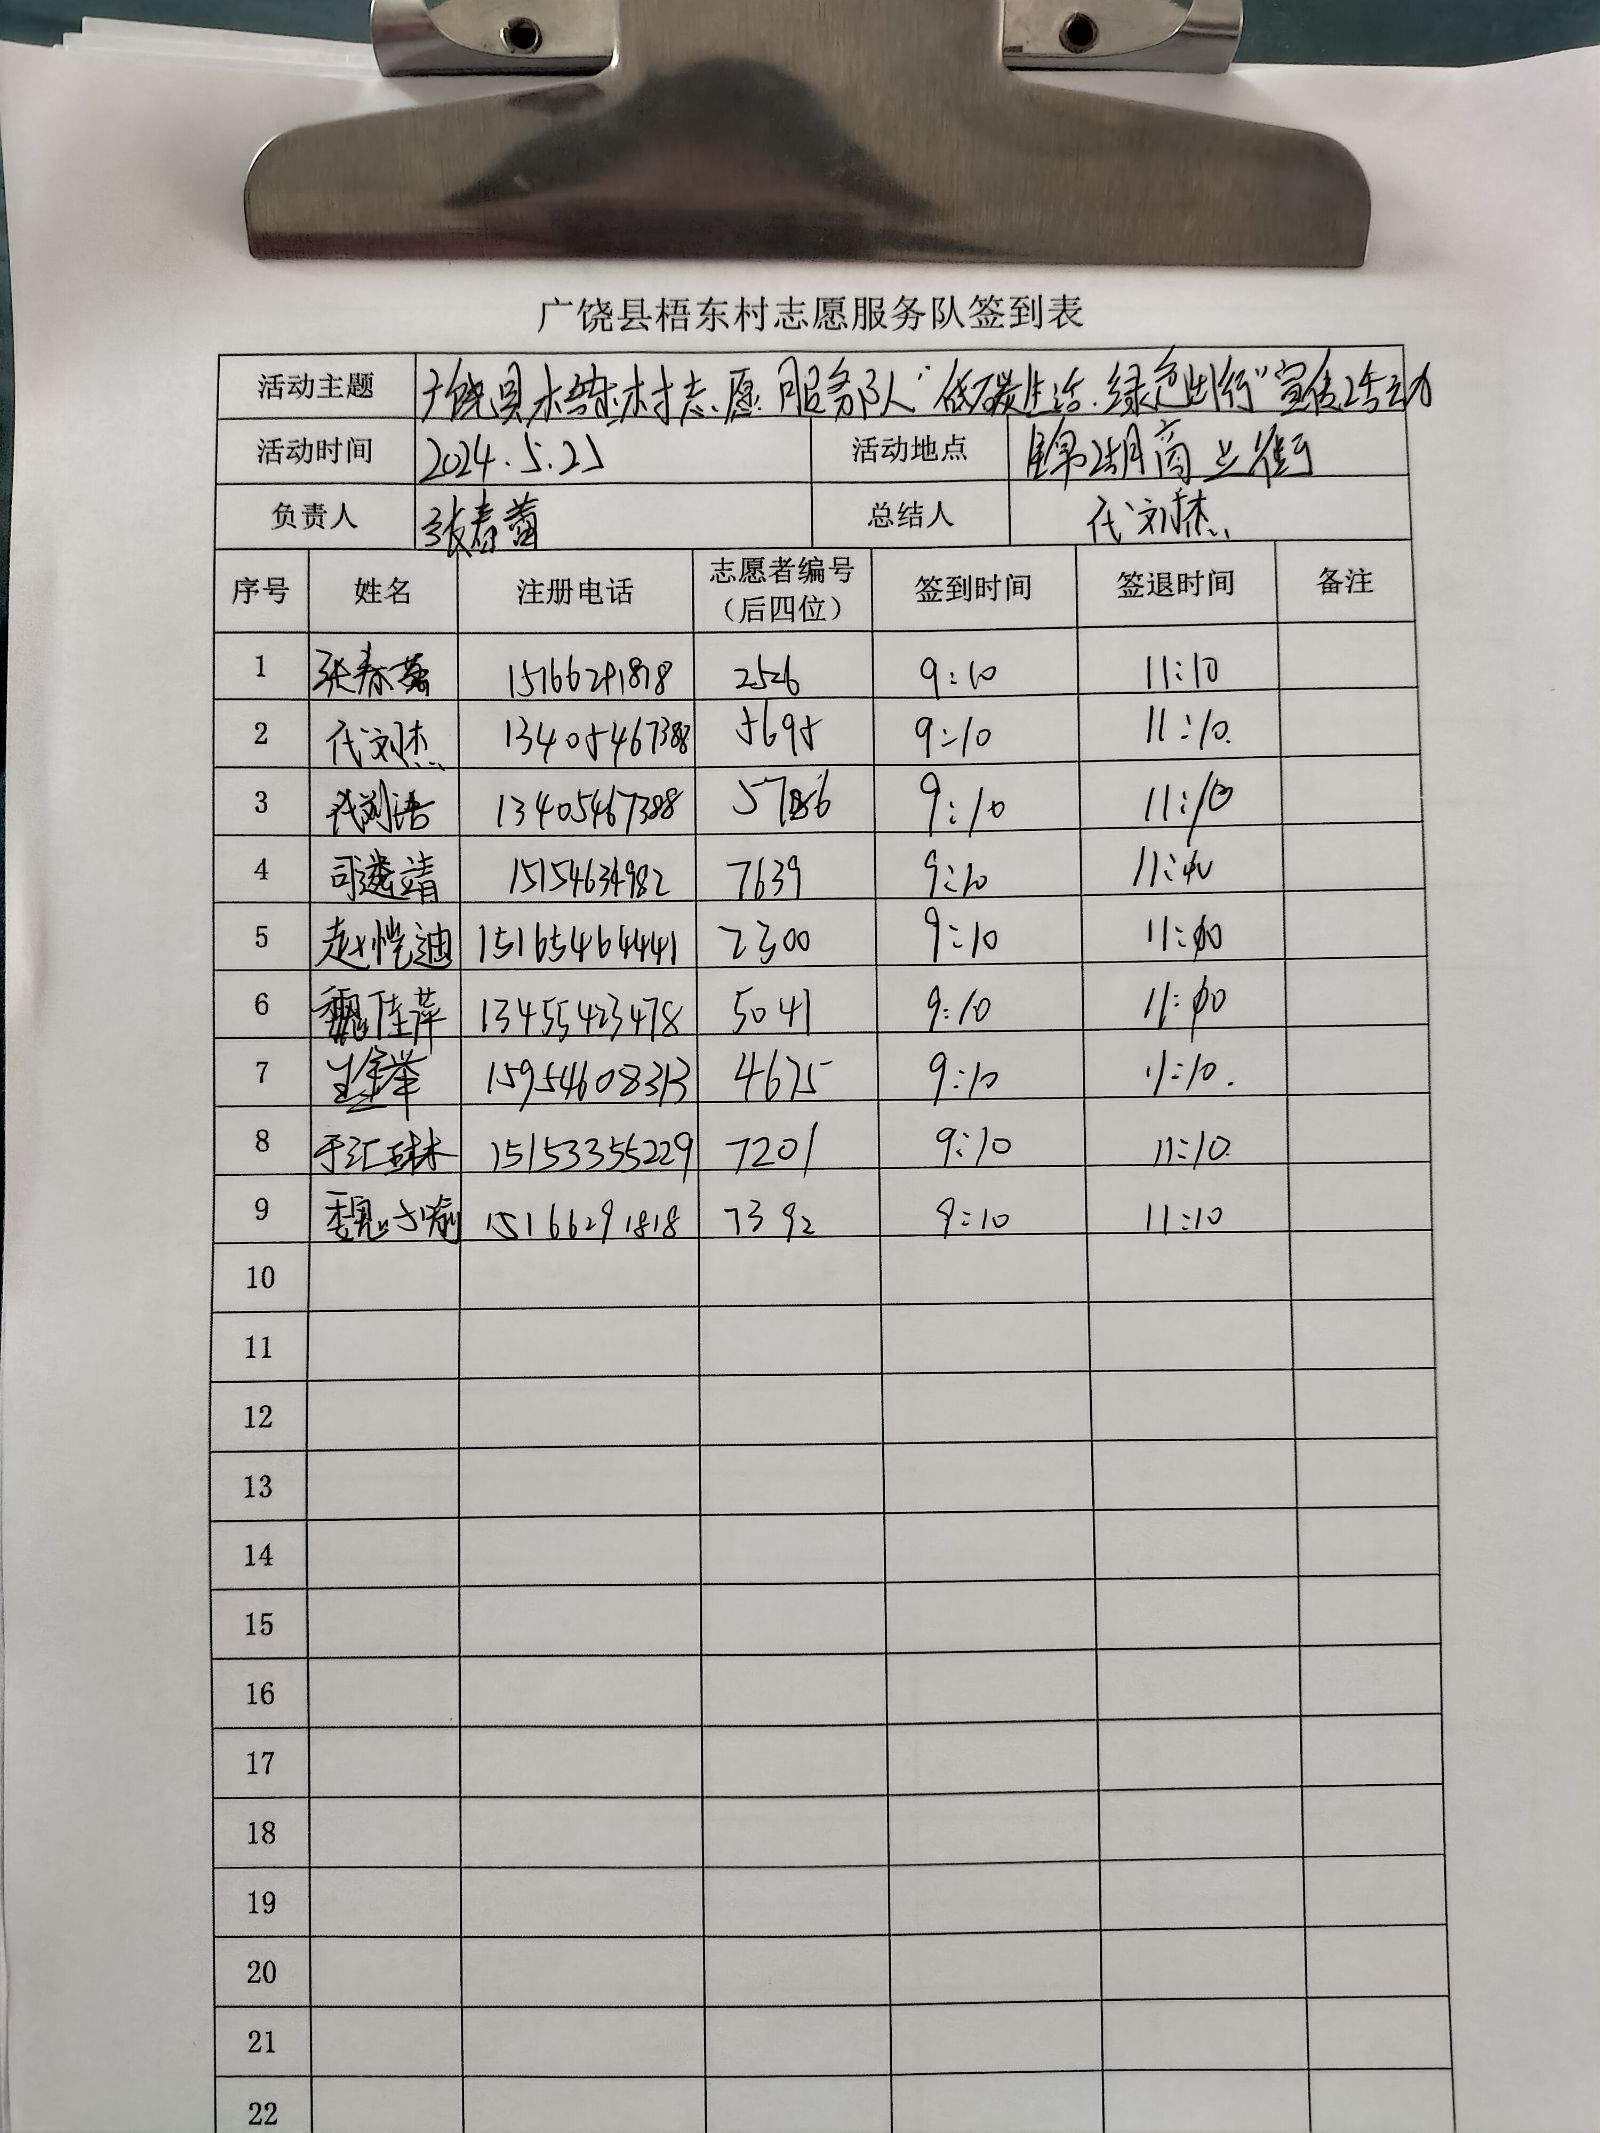 广饶县梧东村志愿服务队签到表
活动主题 广饶县梧东村志愿服务队“低碳生活.绿色出行”宣传活动
活动时间 2024.5.25 活动地点 锦湖商业街
负责人 张春蕾 总结人 代刘杰
序号 姓名 注册电话 志愿者编号（后四位） 签到时间 签退时间 备注
1 张春蕾 15166291818 2526 9:10 11:10
2 代刘杰 13405467388 5695 9:10 11:10
3 代刘洁 13405467388 9:10 11:10
4 司 靖 15154634982 7639 9:10 11:10
5 赵恺迪 15165464441 2300 9:10 11:10
6 魏佳萍 13455423478 5041 9:10 11:10
7 举 15954608313 4675 9:10 11:10
8 于汇琳 15153355229 7201 9:10 11:10
9 魏小喻 15166291818 7392 9:10 11:10
10
11
12
13
14
15
16
17
18
19
20
21
22